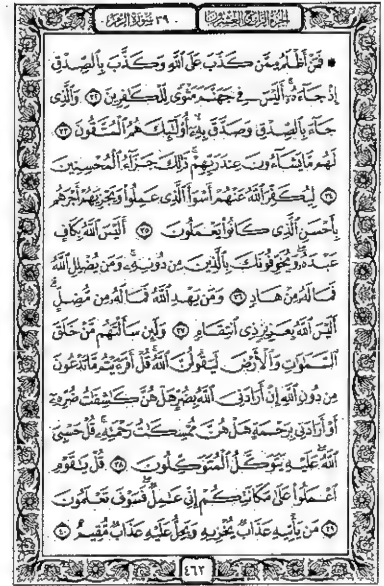 الجزء الرابع والعشرون ٣٩ سورة الزمر
۞ فَمَنْ أَظْلَمُ مِمَّن كَذَبَ عَلَى ٱللَّهِ وَكَذَّبَ بِٱلصِّدْقِ
إِذْ جَآءَهُۥٓۚ أَلَيْسَ فِى جَهَنَّمَ مَثْوًى لِّلْكَٰفِرِينَ ٣٢ وَٱلَّذِى
جَآءَ بِٱلصِّدْقِ وَصَدَّقَ بِهِۦٓۙ أُو۟لَٰٓئِكَ هُمُ ٱلْمُتَّقُونَ ٣٣
لَهُم مَّا يَشَآءُونَ عِندَ رَبِّهِمْۚ ذَٰلِكَ جَزَآءُ ٱلْمُحْسِنِينَ
٣٤ لِيُكَفِّرَ ٱللَّهُ عَنْهُمْ أَسْوَأَ ٱلَّذِى عَمِلُوا۟ وَيَجْزِيَهُمْ أَجْرَهُم
بِأَحْسَنِ ٱلَّذِى كَانُوا۟ يَعْمَلُونَ ٣٥ أَلَيْسَ ٱللَّهُ بِكَافٍ
عَبْدَهُۥۖ وَيُخَوِّفُونَكَ بِٱلَّذِينَ مِن دُونِهِۦۚ وَمَن يُضْلِلِ ٱللَّهُ
فَمَا لَهُۥ مِنْ هَادٍ ٣٦ وَمَن يَهْدِ ٱللَّهُ فَمَا لَهُۥ مِن مُّضِلٍّۗ
أَلَيْسَ ٱللَّهُ بِعَزِيزٍ ذِى ٱنتِقَامٍ ٣٧ وَلَئِن سَأَلْتَهُم مَّنْ خَلَقَ
ٱلسَّمَٰوَٰتِ وَٱلْأَرْضَ لَيَقُولُنَّ ٱللَّهُۚ قُلْ أَفَرَءَيْتُم مَّا تَدْعُونَ
مِن دُونِ ٱللَّهِ إِنْ أَرَادَنِىَ ٱللَّهُ بِضُرٍّ هَلْ هُنَّ كَٰشِفَٰتُ ضُرِّهِۦٓ
أَوْ أَرَادَنِى بِرَحْمَةٍ هَلْ هُنَّ مُمْسِكَٰتُ رَحْمَتِهِۦۚ قُلْ حَسْبِىَ
ٱللَّهُۖ عَلَيْهِ يَتَوَكَّلُ ٱلْمُتَوَكِّلُونَ ٣٨ قُلْ يَٰقَوْمِ
ٱعْمَلُوا۟ عَلَىٰ مَكَانَتِكُمْ إِنِّى عَٰمِلٌۖ فَسَوْفَ تَعْلَمُونَ
٣٩ مَن يَأْتِيهِ عَذَابٌ يُخْزِيهِ وَيَحِلُّ عَلَيْهِ عَذَابٌ مُّقِيمٌ ٤٠
٤٦٢